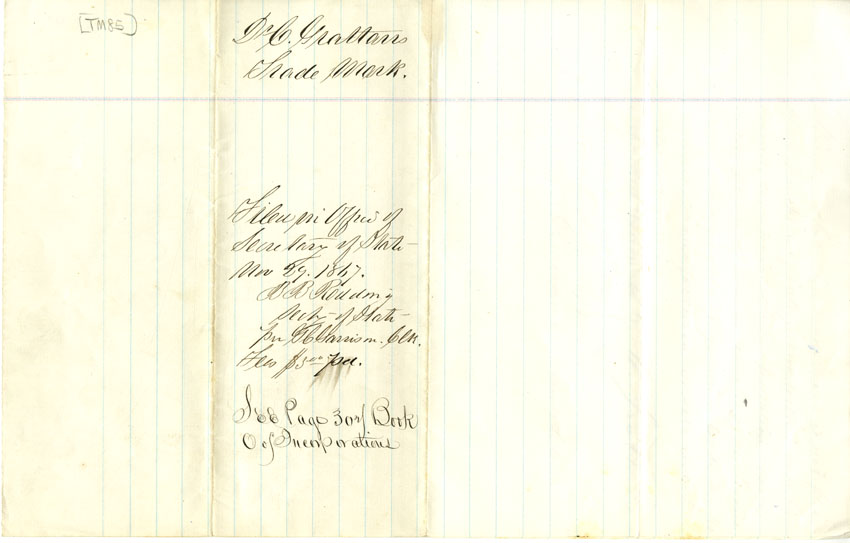 [TM85]
Dr C. Grattans
Trade Mark.
Filed in Office of
Secretary of State
Nov 29. 1867.
B B Redding
Secty of State
per Garrison. Clk.
Fees $3 00 pd.
See Page Book
C of Incorporations